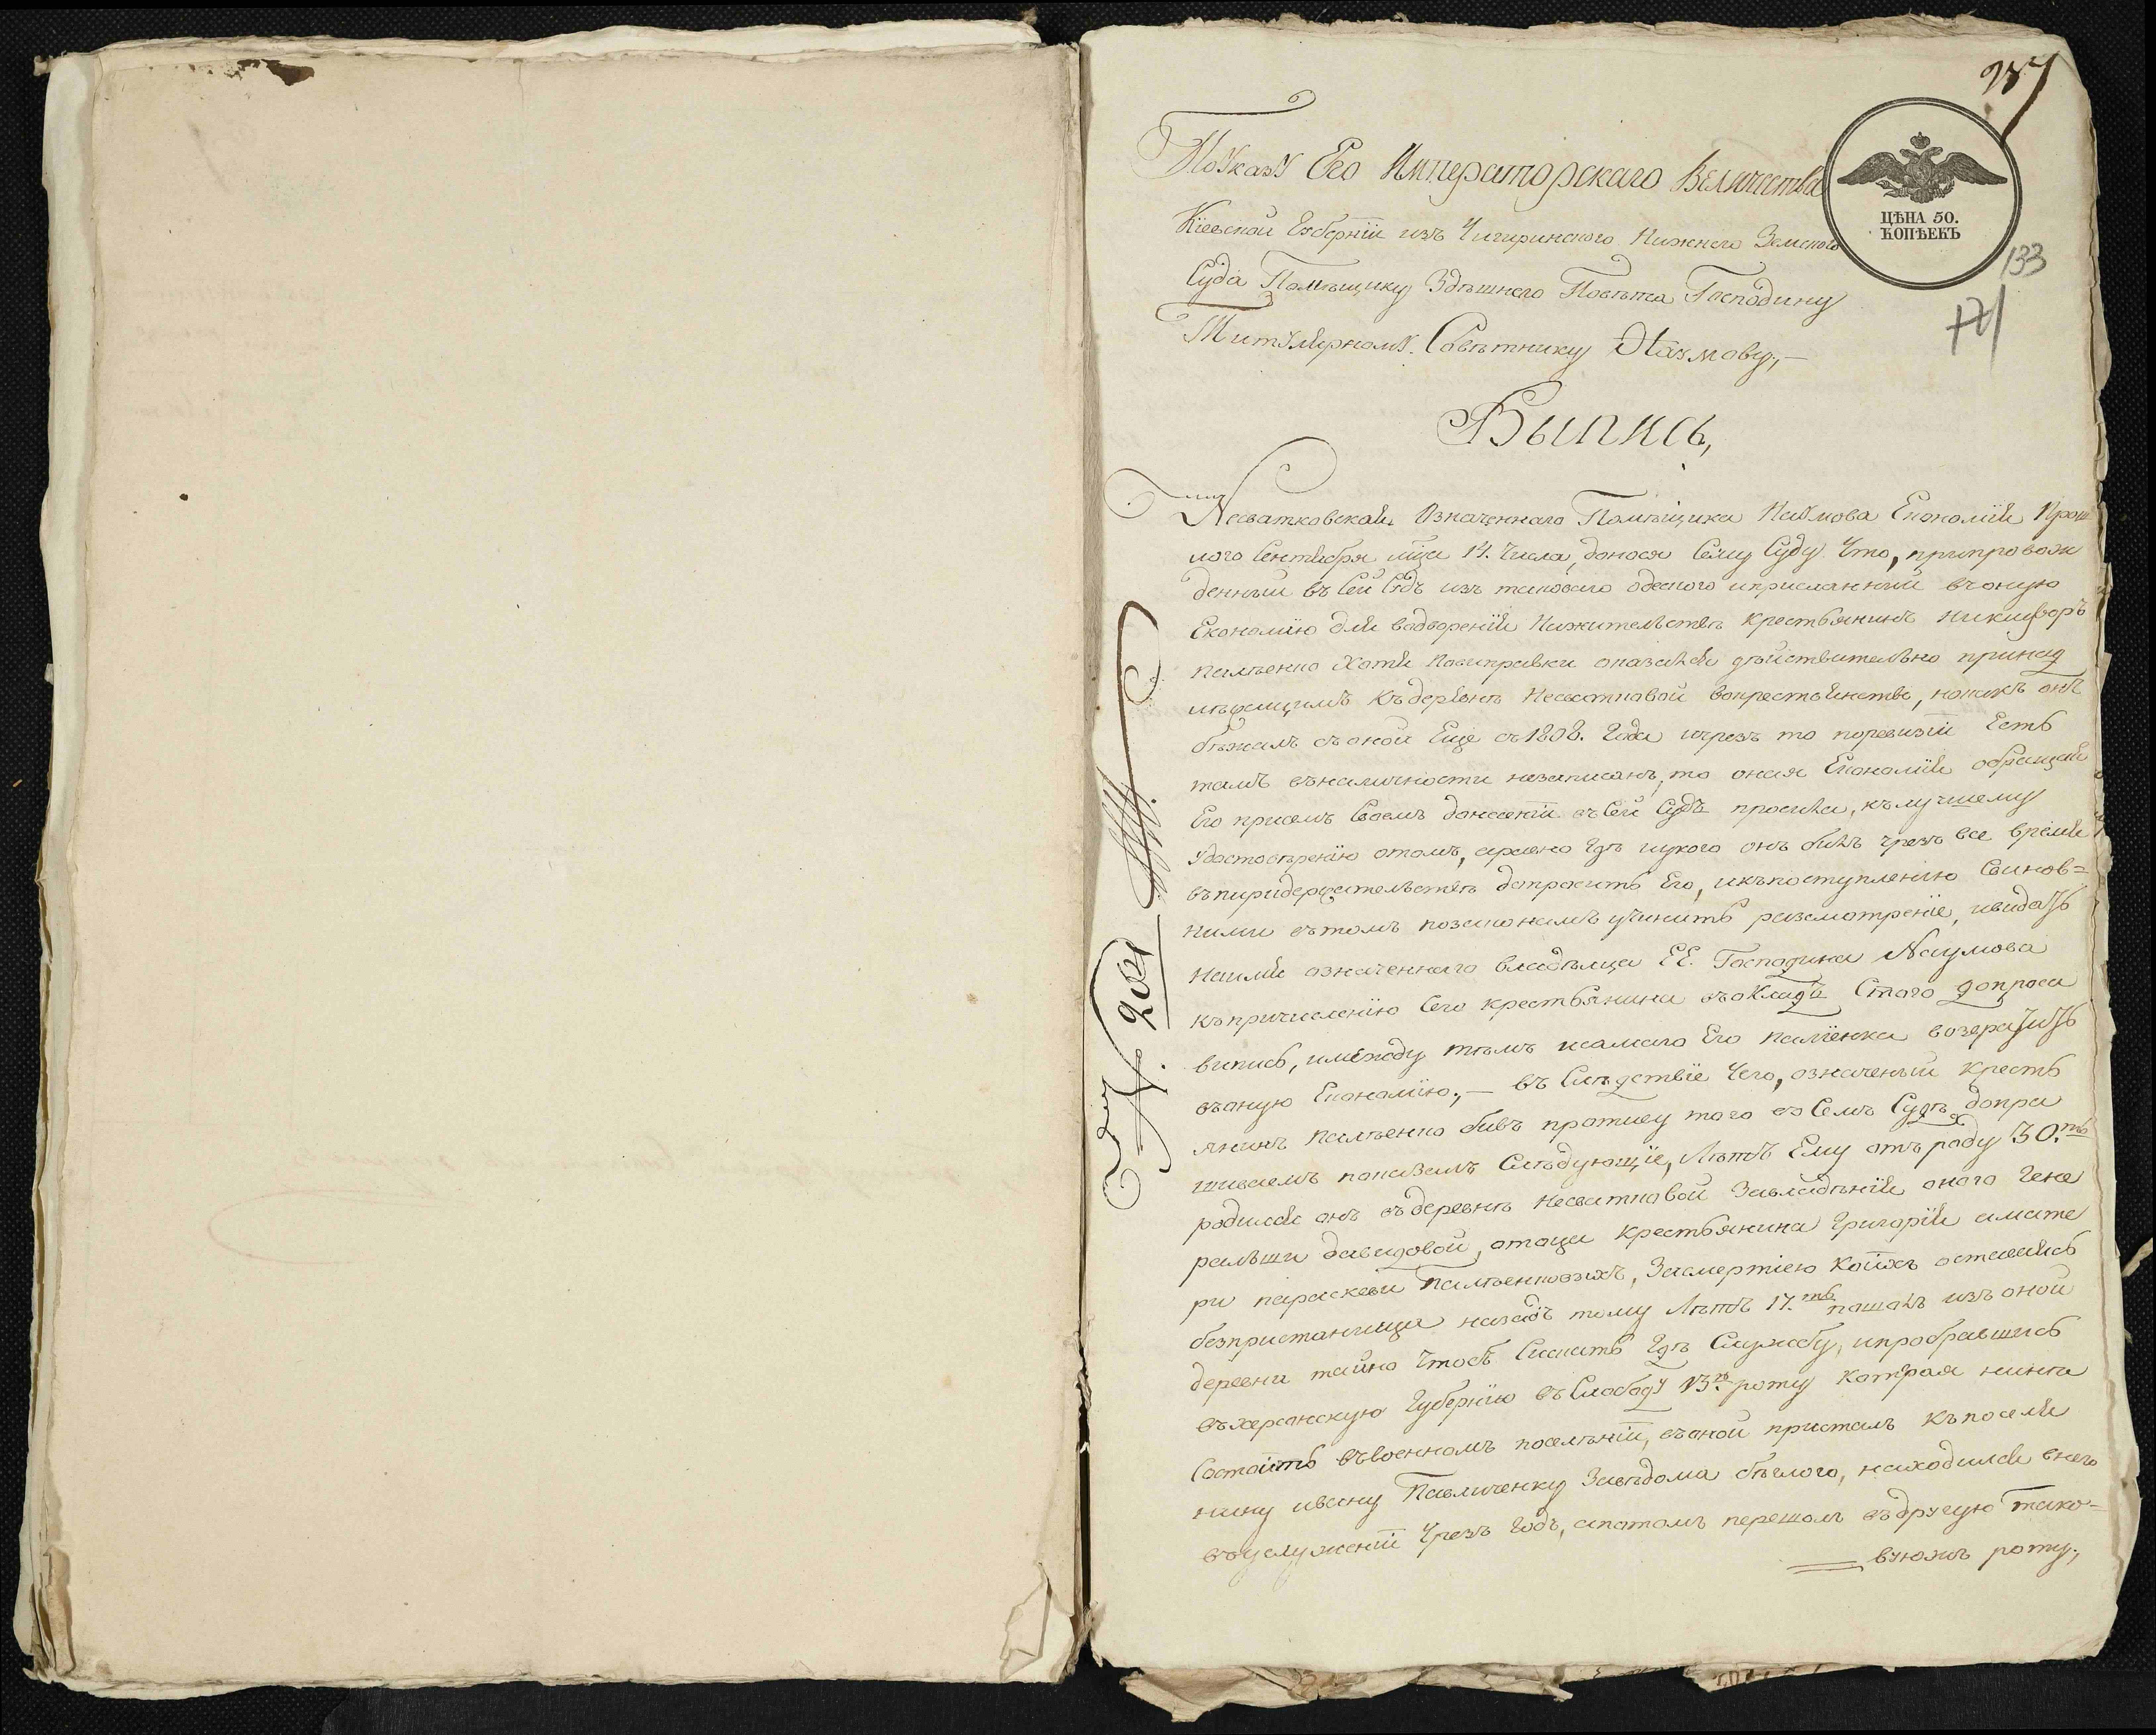 257
ПоУказУ Его Императорскаго Величества
ЦѢНА 50.
КОПѢЕКЪ
Кіевской Губерніи изъ Чигиринского Нижнего Земского
133
Суда Помѣщику Здѣшнего Повѣта Господину
171
ТитУлярномУ Совѣтнику НаУмову,—
Выпись,
Несватковская Означеннаго Помѣщика НаУмова Економія Прош
лого Сентября мца 14. числа, донося Сему Суду что, припровож
денный въ Сей Судъ изъ таковаго одеского иприсланный вчоную
Економію для водворенія Нажительствѣ крестьянинъ никифоръ
палѣенко Хотя посправки оказался дѣйствительно принад
лѣжащимъ Къдеревнѣ Несватковой вокрестьянствѣ, нокакъ онъ
бѣжалъ съоной Еще съ1808. Года ичрезъ то поревизіи Есть
тамъ въналичности незаписанъ, то оная Економія обращая
Его присемъ Своемъ донесеніи въСей Судъ просила, кълучшему
Удостовѣренію отомъ, аравно гдѣ иукого онъ былъ чрезъ все время
въпиридержательствѣ допросить Его, икъпоступленію Свинов=
ними вътомъ позаконамъ учинить разсмотреніе, ивидать
наимя означеннаго владѣльца ЕЕ. Господина Наумова
къпричисленію Сего крестьянина въокладъ Стого допроса
випись, имежду тѣмъ исамаго Его палієнка возвратить
въоную Економію,— въ Слѣдствіе Чего, означеный кресть
янинъ палѣенко бывъ противу того въ Семъ Судѣ допра
шиваемъ показалъ Слѣдующіе, Лѣтъ Ему отъроду 30.ть
родился онъ въдеревнѣ несватковой Завладѣнія оного гене
ральши давидовой, отоца крестьянина григорія имате
ри параскеви Палѣенковихъ, Засмертіею коихъ оставаясь
безпристанища назадъ тому Лѣтъ 17.ть пошолъ изъ оной
деревни тайно чтобъ Сискать гдѣ Службу, ипробравшись
въхерсонскую Губернію въСлободУ 13.ю роту которая нинѣ
Состоитъ въвоенномъ поселѣніи, въоной присталъ къпоселя
нину ивану Павличенку Завѣдома бѣглого, находился внего
въуслуженіи Чрезъ годъ, апотомъ перешолъ въдругую тако=
вуюжъ роту,
N. 2064